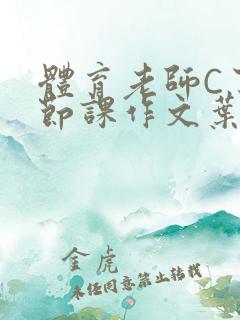 體育老師C了
節課作文葉
金虎
未经同意禁止转载